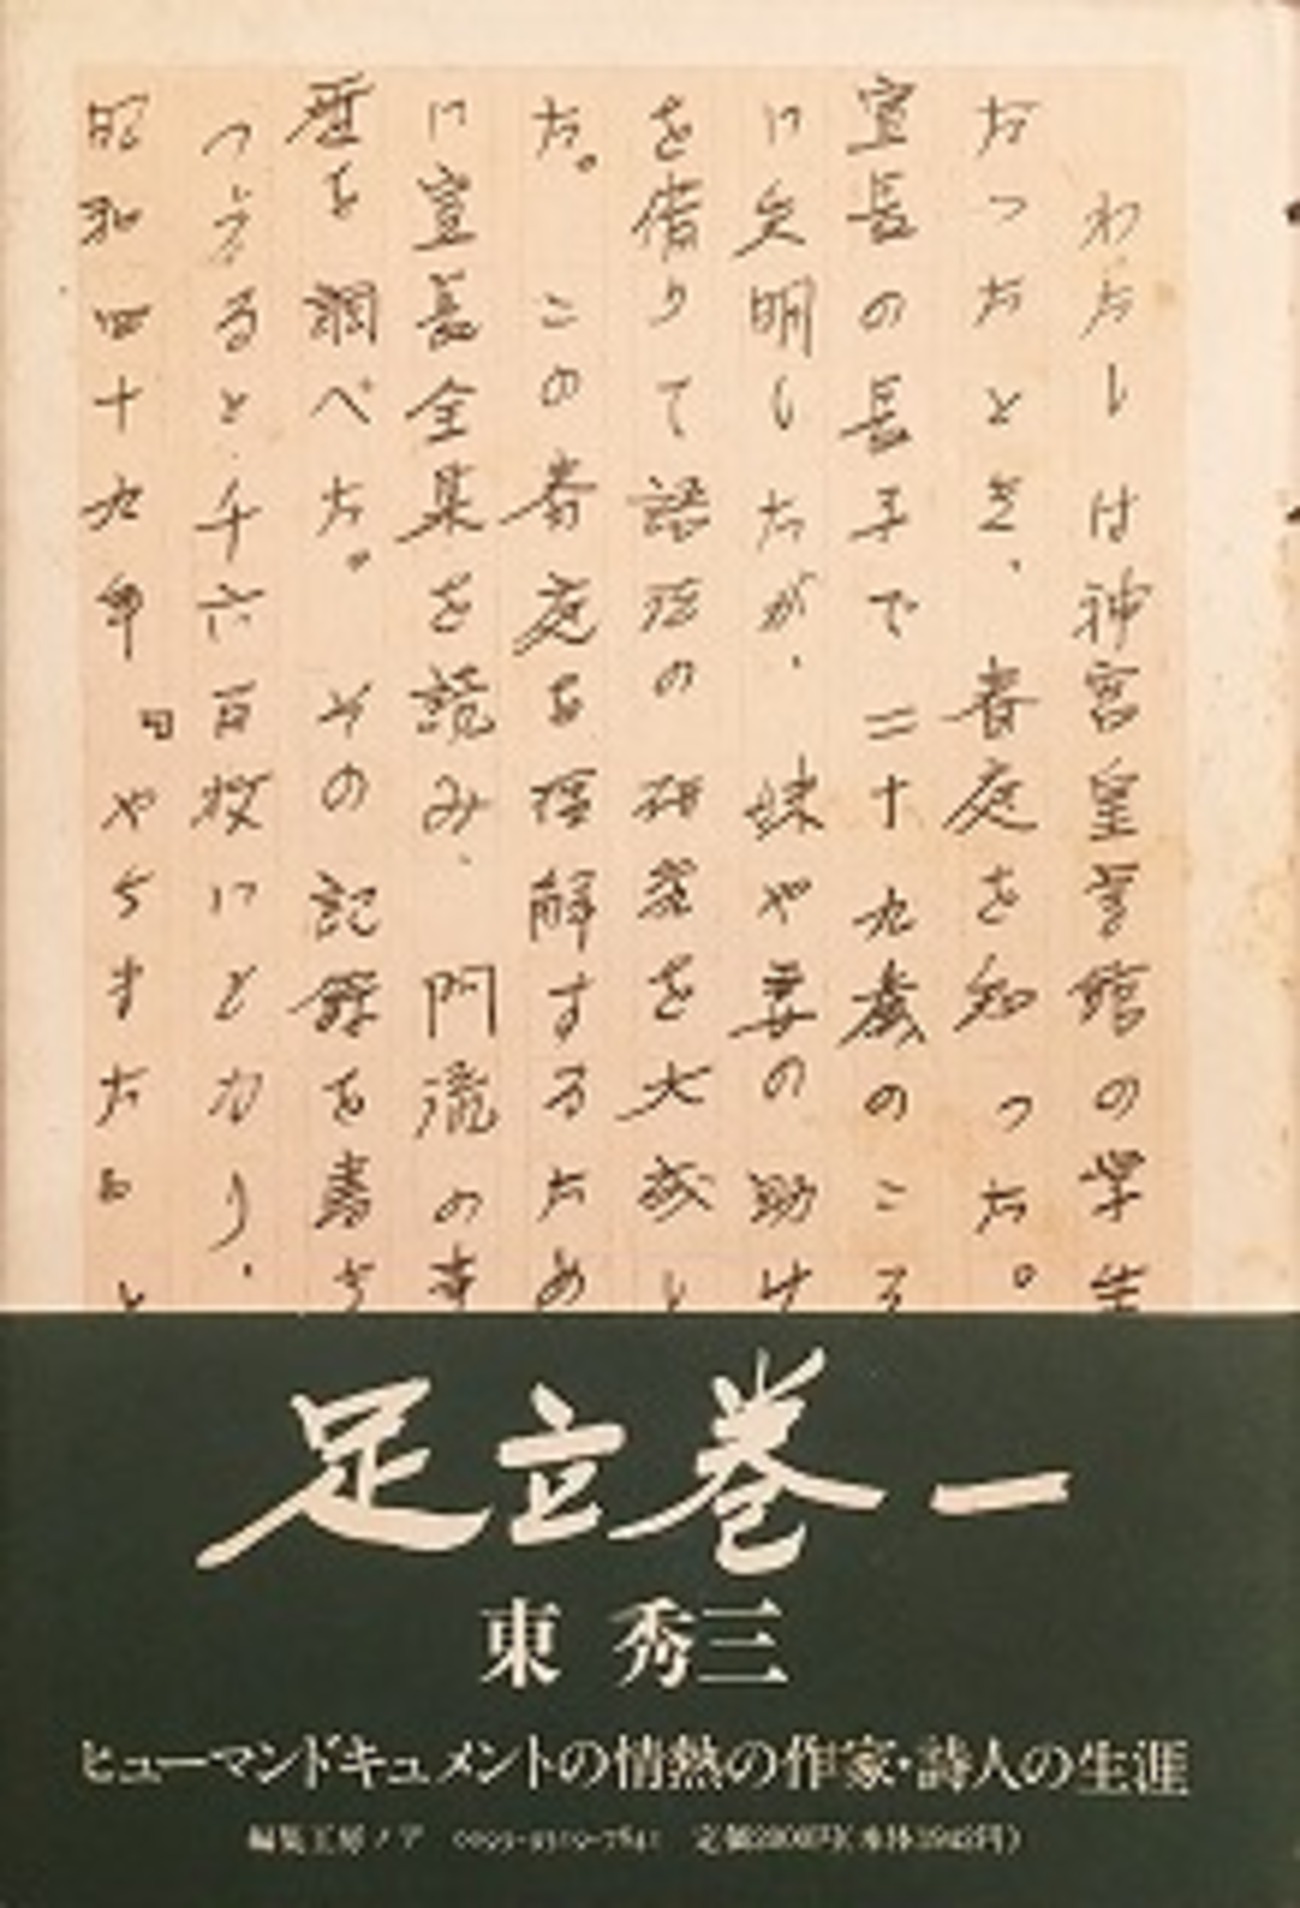 わたしは神宮皇学館の学生
だったとき、春庭を知った。
宣長の長子で二十九歳のころ
に失明したが、妹や妻の助け
を借りて語法の研究を大成し
た。この春庭を理解するため
に宣長全集を読み、門流の事
歴を調べた。その記録を書き
つづると千六百枚にとなり、
昭和四十九年『やちまた』と
足立巻一
東 秀三
ヒューマンドキュメントの情熱の作家・詩人の生涯
編集工房ノア 定価2000円(本体1942円)